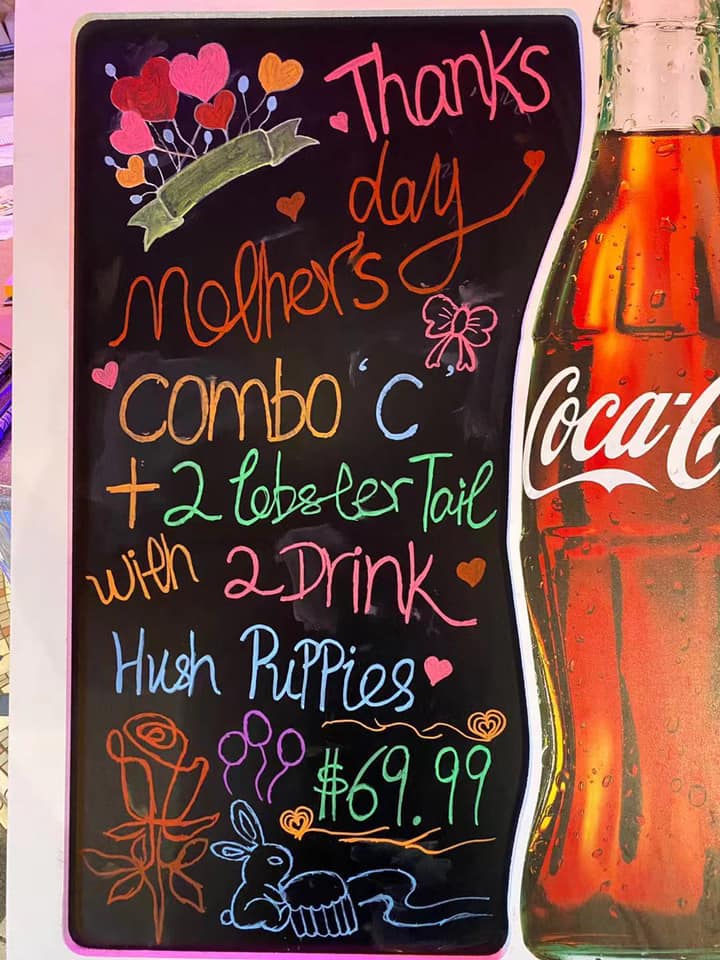 Thanks
day
Mother's
Combo 'C'
+ 2 lobster Tail
with 2 Drink
Hush Puppies
$69.99
Coca-C